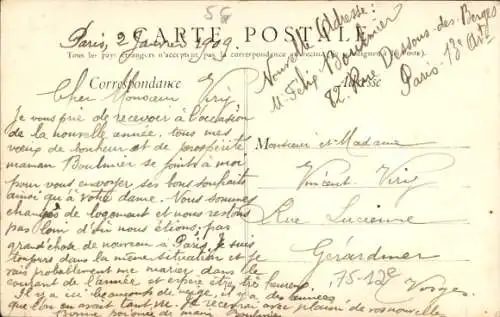 56
CARTE POSTALE
Paris, 2 Janvier 1909.
Tous les pays étrangers n'acceptent pas la correspondance au
Correspondance
Adresse
Nouvelle Adresse:
M. Felix Boulmier
82. Rue Dessous-des-Berges
Paris. 13e Arrt
Cher Monsieur Viry
Je vous prie de recevoir à l'occasion
de la nouvelle année, tous mes
vœux de bonheur et de prospérité
maman Boulmier se joint à moi
pour vous envoyer ses bons souhaits
ainsi qu'à votre dame. Nous sommes
changés de logement et nous restons
pas loin d'où nous étions, pas
grand'chose de nouveau à Paris, Je suis
toujours dans la même situation et je
vais probablement me marier dans le
courant de l'année et espère être très heureux.
Il y a eu beaucoup de neige, il y a des années
que l'on en avait tant vu. Je recevrai avec plaisir de vos nouvelles
Bonne poignée de main Boulmier
Monsieur et Madame
Vincent Viry
Rue Lucienne
Gérardmer
75-129
Vosges.